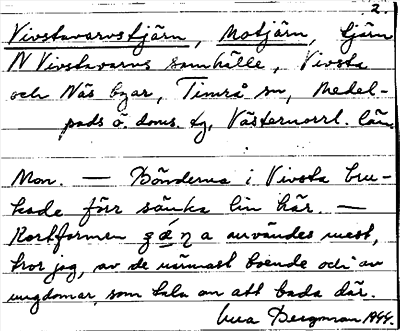 2.
Vivstavarvstjärn, Motjärn, tjärn
N Vivstavarvs samhälle, Vivsta
och Näs byar, Timrå sn, Medel-
pads ö. doms. tg, Västernorrl. län.
Man. — Bönderna i Vivsta bru-
kade förr sänka lin här. —
Kortformen användes mest,
tror jag, av de närmast boende och av
ungdomar, som tala om att bada där.
Bergman 1944.